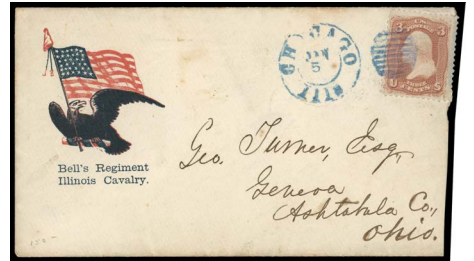 CHICAGO
JAN
5
Ills
3 3
U S
CENTS
Bell's Regiment
Illinois Cavalry.
Geo. Turner, Esq,
Geneva
Ashtabula Co.,
Ohio.